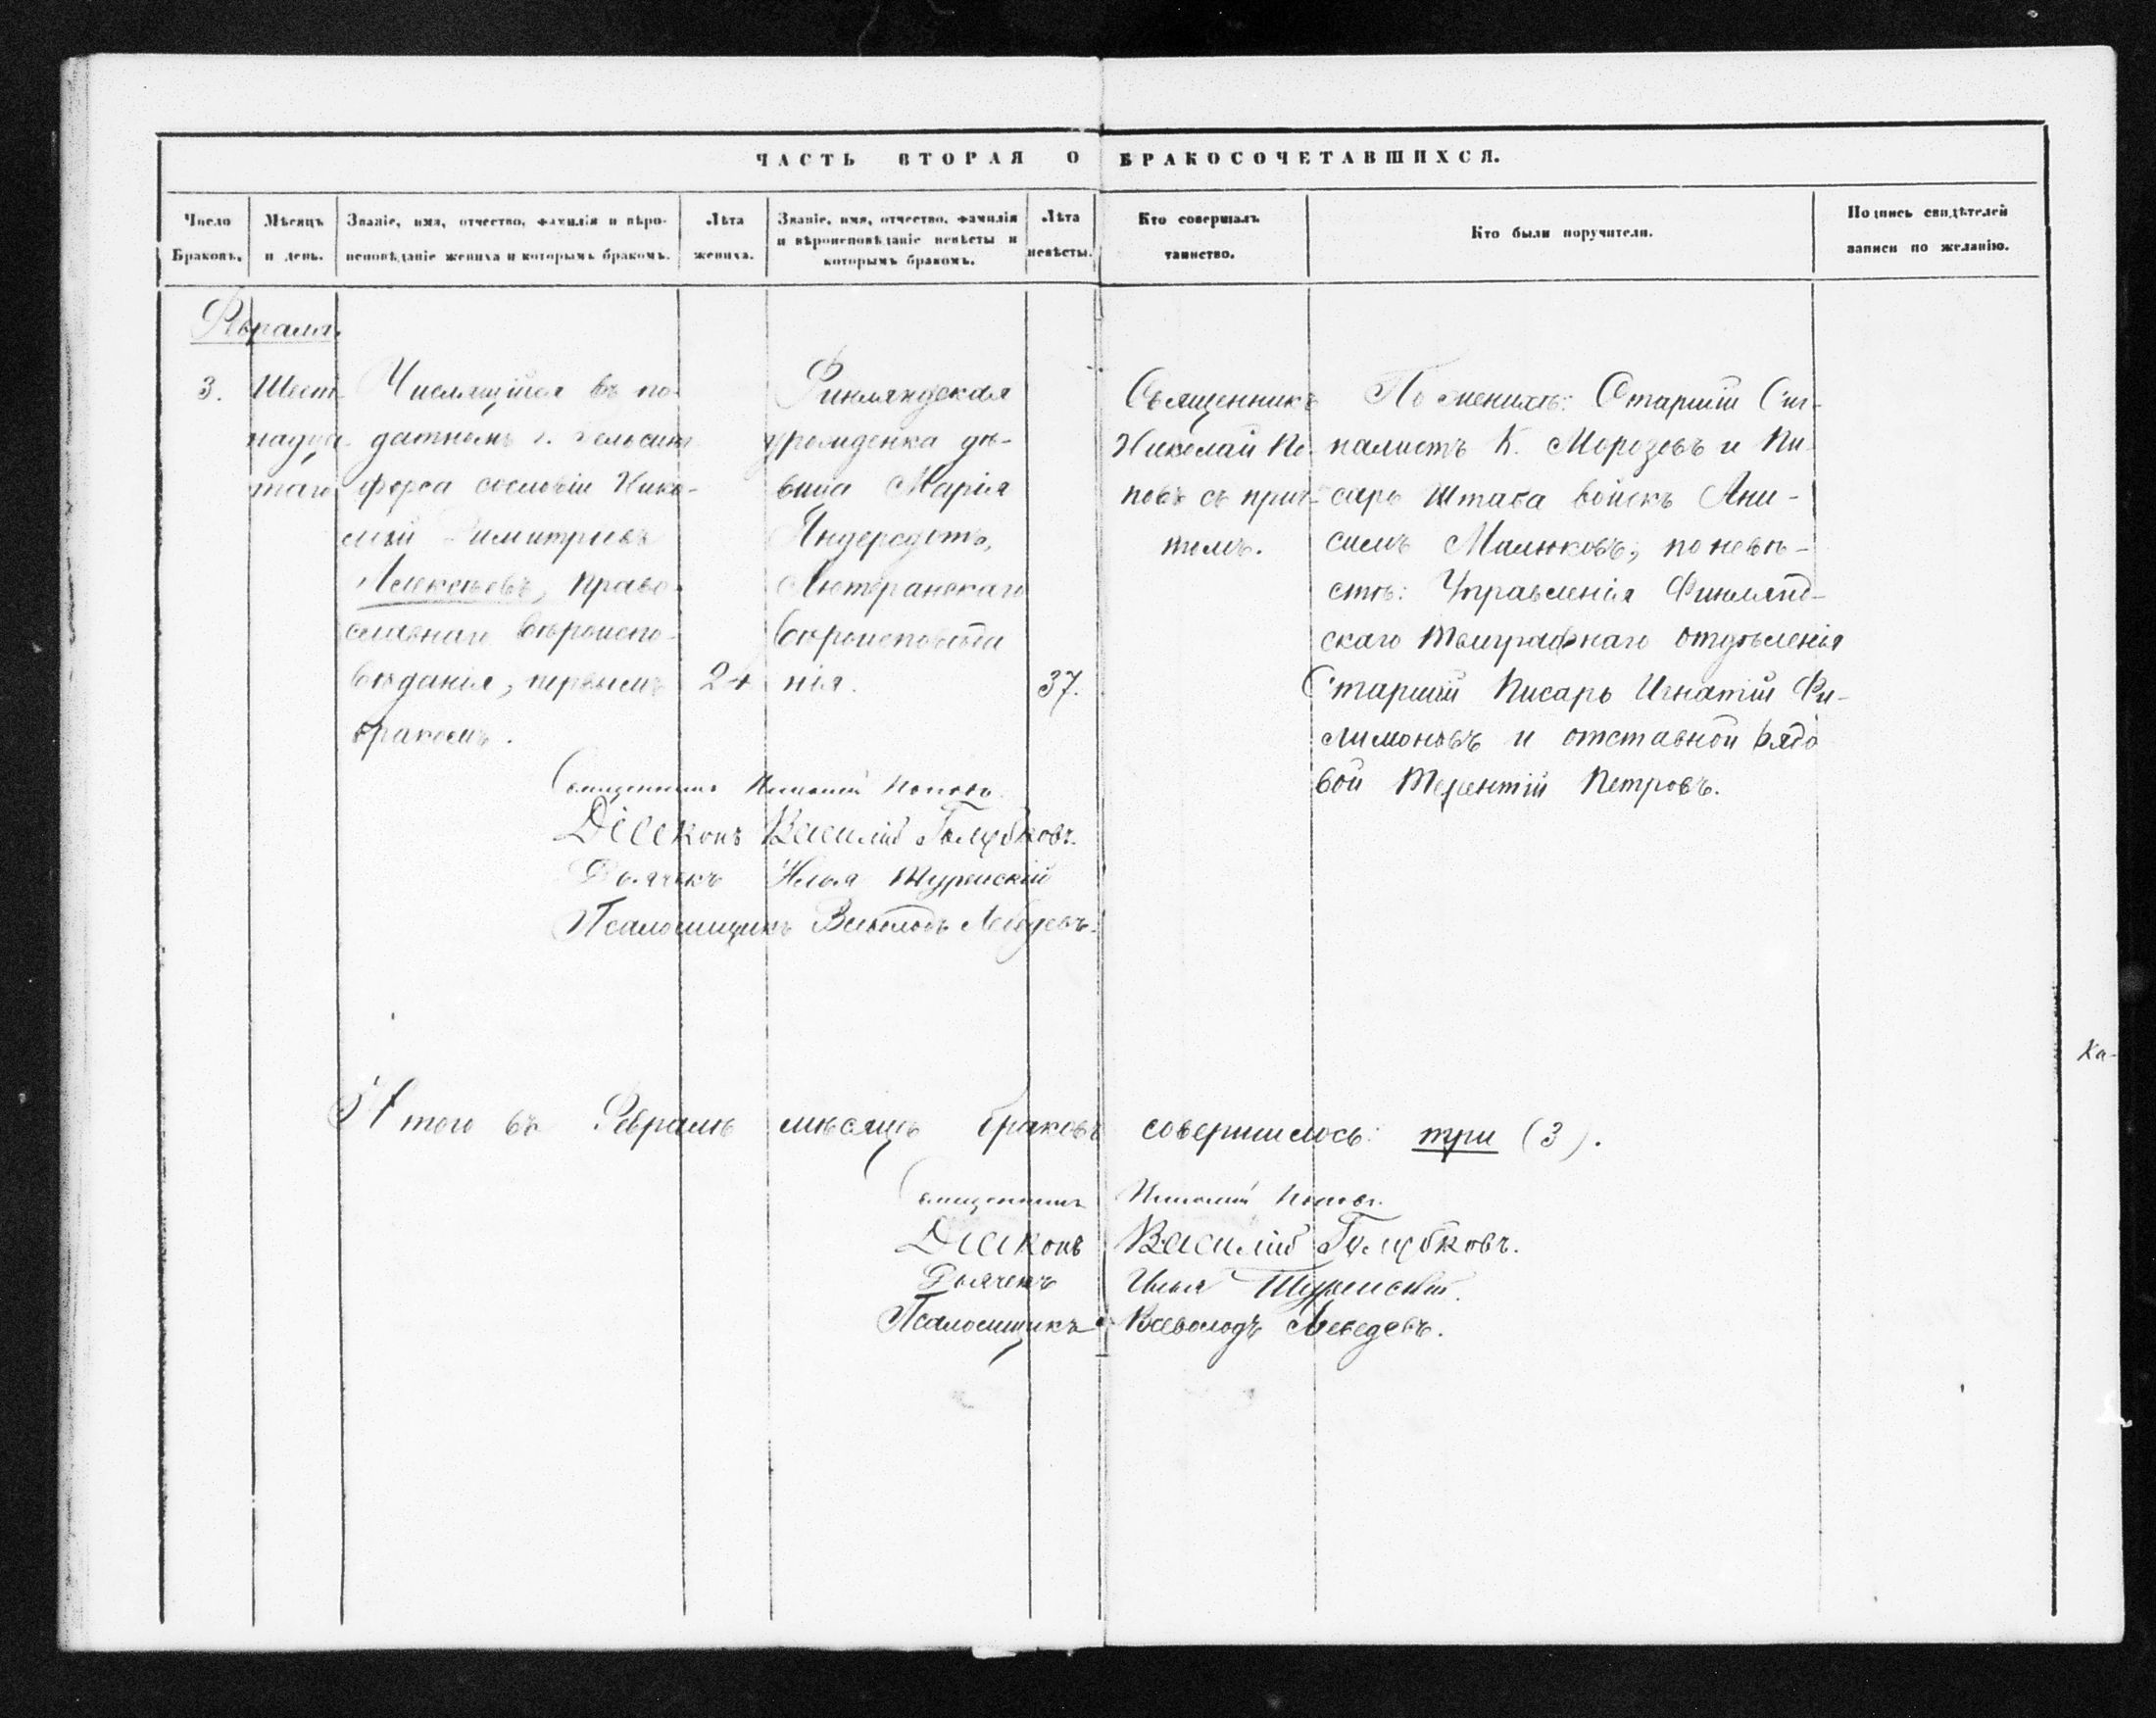 ЧАСТЬ ВТОРАЯ О БРАКОСОЧЕТАВШИХСЯ.
Число Браковъ.
Мѣсяцъ и день.
Званіе, имя, отчество, фамилія и вѣро-
исповѣданіе жениха и которымъ бракомъ.
Лѣта жениха.
Званіе, имя, отчество, фамилія
и вѣроисповѣданіе невѣсты и
которымъ бракомъ.
Лѣта невѣсты.
Кто совершалъ
таинство.
Кто были поручители.
Подпись свидѣтелей
записи по желанію.
Февраля.
3.
Шест-
надца-
таго
Числящійся въ по-
датномъ г. Гельсинг
форса сословіи Нико-
лай Димитріевъ
Алексѣевъ, право-
славнаго вѣроиспо-
вѣданія, первымъ
бракомъ.
24
Финляндская
уроженка дѣ-
вица Марія
Андерсдотъ,
Лютеранскаго
вѣроисповѣда
нія.
37.
Священникъ
Николай По-
повъ съ прич-
томъ.
По женихѣ: Старшій Сиг-
налистъ К. Морозовъ и Пи-
сарь Штаба войскъ Ани-
симъ Малюковъ; по невѣ-
стѣ: Управленія Финлянд-
скаго Телеграфнаго отдѣленія
Старшій Писарь Игнатій Фи-
лимоновъ и отставной рядо
вой Терентій Петровъ.
Священникъ Николай Поповъ.
Діаконъ Василій Голубковъ.
Дьячекъ Илья
Псаломщикъ Всеволодъ Лебедевъ.
Итого въ Февралѣ мѣсяцѣ браковъ совершилось: три (3).
Священникъ Николай Поповъ.
Діаконъ Василій Голубковъ.
Дьячекъ Илья
Псаломщикъ Всеволодъ Лебедевъ.
Ка-